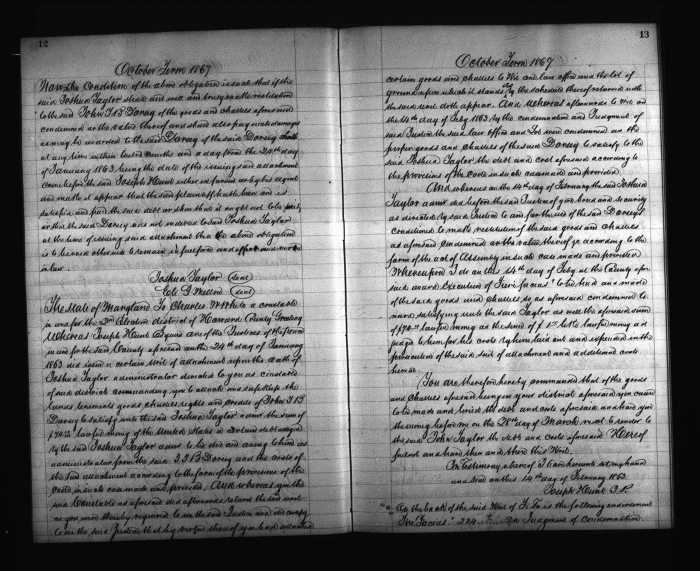 12
October Term 1867
Now the Condition of the above obligation is such that if the
said Joshua Taylor shall and will and truly make restitution
to the said John T B Dorsey of the goods and chattles aforesaid
condemned or the value thereof and shall also pay such damages
as may be awarded to the said Dorsey if the said Dorsey shall
at any time within twelve months and a day from the 24th day
of January 1863 being the date of the issuing said attachment
come before the said Joseph Hunt either in person or by his agent
and make it appear that the said plaintiff hath been and is
satisfied and paid the said debt or shew that it ought not to be paid
or that the said Dorsey was not indebted to said Joshua Taylor
at the time of issuing said attachment then the above obligation
is to be void otherwise to remain in full force and effect and virtue
in law.
Joshua Taylor (Seal)
(Seal)
The State of Maryland To Charles W White a constable
in and for the 2nd Election district of Howard County Greeting
Whereas Joseph Hunt Esquire one of the Justices of the Peace
in and for the said County aforesaid on the 24th day of January
1863 did issue a certain writ of attachment upon the oath of
Joshua Taylor administrator directed to you as constable
of said district commanding you to attach and safe keep the
lands tenements goods chattles rights and credits of John T B
Dorsey to satisfy unto the said Joshua Taylor admr the sum of
lawful money of the United States a certain debt
by the said Joshua Taylor admr to be due and owing to him as
administrator from the said J T B Dorsey and the costs of
the said attachment according to the form of the provisions of the
Code in such case made and provided. And whereas you the
said Constable as aforesaid did afterwards return the said writ
as you were thereby required to me the said Justice and did certify
to me the said Justice that by virtue thereof you had attached
13
October Term 1867
certain goods and chattles to Wit one law office and the lot of
ground upon which it stands as by the schedule thereof returned with
the said writ doth appear. And Whereas afterwards to Wit on
the 14th day of Feby 1863 by the condemnation and Judgment of
said Justice the said law office and lot were condemned as the
proper goods and chattles of the said Dorsey to satisfy to the
said Joshua Taylor the debt and cost aforesaid according to
the provisions of the Code in such case made and provided.
And whereas on the 14th day of February the said Joshua
Taylor admr did before the said Justice of give bond and security
as directed by said Justice to and for the use of the said Dorsey
conditioned to make restitution of the said goods and chattles
as aforesaid condemned or the value thereof &c according to the
form of the act of Assembly in such case made and provided
Whereupon I do on this 14th day of Feby at the County afore
said award Execution of Fieri facias to be had and made
of the said goods and chattles so as aforesaid condemned to
ward satisfying unto the said Taylor as well the aforesaid sum
of lawful money as the sum of lawful money ad
judged to him for his costs by him laid out and expended in the
prosecution of the said suit of attachment and additional costs
hereon
You are therefore hereby commanded that of the goods
and Chattles aforesaid being in your district aforesaid you cause
to be made and levied the debt and costs aforesaid and have you
the money before me on the 28th day of March next to render to
the said John Taylor the debt and costs aforesaid Hereof
fail not and have then and there this Writ.
In Testimony whereof I have hereunto set my hand
and seal on this 14th day of February 1863.
Joseph Hunt J.P.
On the back of the said Writ of Fi Fa is the following endorsement
"Fieri Facias" 204 on Judgment of Condemnation